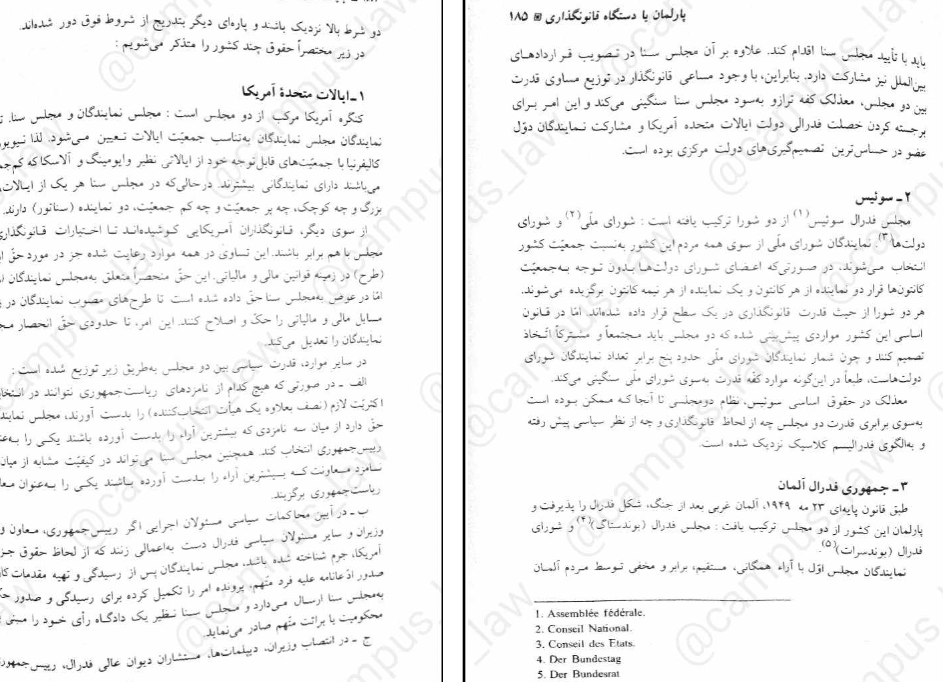 دو شرط بالا نزدیک باشند و پاره‌ای دیگر بتدریج از شروط فوق دور شده‌اند.
در زیر مختصراً حقوق چند کشور را متذکر می‌شویم :
۱ـ ایالات متحدهٔ آمریکا
کنگره آمریکا مرکب از دو مجلس است : مجلس نمایندگان و مجلس سنا.
نمایندگان مجلس نمایندگان به‌تناسب جمعیّت ایالات تعیین می‌شود. لذا
کالیفرنیا با جمعیّت‌های قابل توجه خود از ایالاتی نظیر وایومینگ و آلاسکا که
می‌باشند دارای نمایندگانی بیشترند. در حالی‌که در مجلس سنا هر یک از ایالات،
بزرگ و چه کوچک، چه پر جمعیّت و چه کم جمعیّت، دو نماینده (سناتور) دارند.
از سوی دیگر، قانونگذاران آمریکایی کوشیده‌اند تا اختیارات قانونگذاری
مجلس با هم برابر باشند. این تساوی در همه موارد رعایت شده جز در مورد حقّ
(طرح) در زمینه قوانین مالی و مالیاتی. این حقّ منحصراً متعلق به‌مجلس نمایندگان
امّا در عوض به‌مجلس سنا حقّ داده شده است تا طرح‌های مصوب نمایندگان در
مسایل مالی و مالیاتی را حکّ و اصلاح کنند. این امر، تا حدودی حقّ انحصار
نمایندگان را تعدیل می‌کند.
در سایر موارد، قدرت سیاسی بین دو مجلس به‌طریق زیر توزیع شده است :
الف ـ در صورتی که هیچ کدام از نامزدهای ریاست‌جمهوری نتوانند در
اکثریّت لازم (نصف بعلاوه یک هیأت انتخاب‌کننده) را بدست آورند، مجلس
حقّ دارد از میان سه نامزدی که بیشترین آراء را بدست آورده باشند یکی را
رییس‌جمهوری انتخاب کند. همچنین مجلس سنا می‌تواند در کیفیّت مشابه از میان
نامزد معاونت که بیشترین آراء را بدست آورده باشند یکی را به‌عنوان
ریاست‌جمهوری برگزیند.
ب ـ در آیین محاکمات سیاسی مسئولان اجرایی اگر رییس‌جمهوری، معاون و
وزیران و سایر مسئولان سیاسی فدرال دست به‌اعمالی زنند که از لحاظ حقوق
آمریکا، جرم شناخته شده باشد، مجلس نمایندگان پس از رسیدگی و تهیه مقدمات
صدور ادّعانامه علیه فرد متّهم، پرونده امر را تکمیل کرده برای رسیدگی و صدور
به‌مجلس سنا ارسال می‌دارد و مجلس سنا نظیر یک دادگاه رأی خود را مبنی
محکومیت یا برائت متّهم صادر می‌نماید.
ج ـ در انتصاب وزیران، دیپلمات‌ها، مستشاران دیوان عالی فدرال،
پارلمان یا دستگاه قانونگذاری ▣ ۱۸۵
باید با تأیید مجلس سنا اقدام کند. علاوه بر آن مجلس سنا در تصویب قراردادهای
بین‌الملل نیز مشارکت دارد. بنابراین، با وجود مساعی قانونگذار در توزیع مساوی قدرت
بین دو مجلس، معذلک کفه ترازو به‌سود مجلس سنا سنگینی می‌کند و این امر برای
برجسته کردن خصلت فدرالی دولت ایالات متحده آمریکا و مشارکت نمایندگان دوّل
عضو در حساس‌ترین تصمیم‌گیری‌های دولت مرکزی بوده است.
۲ـ سوئیس
مجلس فدرال سوئیس(۱) از دو شورا ترکیب یافته است : شورای ملّی(۲) و شورای
دولت‌ها(۳). نمایندگان شورای ملّی از سوی همه مردم این کشور به‌نسبت جمعیّت کشور
انتخاب می‌شوند، در صورتی‌که اعضای شورای دولت‌ها بدون توجه به‌جمعیّت
کانتون‌ها قرار دو نماینده از هر کانتون و یک نماینده از هر نیمه کانتون برگزیده می‌شوند.
هر دو شورا از حیث قدرت قانونگذاری در یک سطح قرار داده شده‌اند. امّا در قانون
اساسی این کشور مواردی پیش‌بینی شده که دو مجلس باید مجتمعاً و مشترکاً اتّخاذ
تصمیم کنند و چون شمار نمایندگان شورای ملّی حدود پنج برابر تعداد نمایندگان شورای
دولت‌هاست، طبعاً در این‌گونه موارد کفّه قدرت به‌سوی شورای ملّی سنگینی می‌کند.
معذلک در حقوق اساسی سوئیس، نظام دومجلسی تا آنجا که ممکن بوده است
به‌سوی برابری قدرت دو مجلس چه از لحاظ قانونگذاری و چه از نظر سیاسی پیش رفته
و به‌الگوی فدرالیسم کلاسیک نزدیک شده است.
۳ـ جمهوری فدرال آلمان
طبق قانون پایه‌ای ۲۳ مه ۱۹۴۹، آلمان غربی بعد از جنگ، شکل فدرال را پذیرفت و
پارلمان این کشور از دو مجلس ترکیب یافت : مجلس فدرال (بوندستاگ)(۴) و شورای
فدرال (بوندسرات)(۵).
نمایندگان مجلس اوّل با آراء همگانی، مستقیم، برابر و مخفی توسط مردم آلمان
1. Assemblée fédérale.
2. Conseil National.
3. Conseil des Etats.
4. Der Bundestag
5. Der Bundesrat
@campus_law